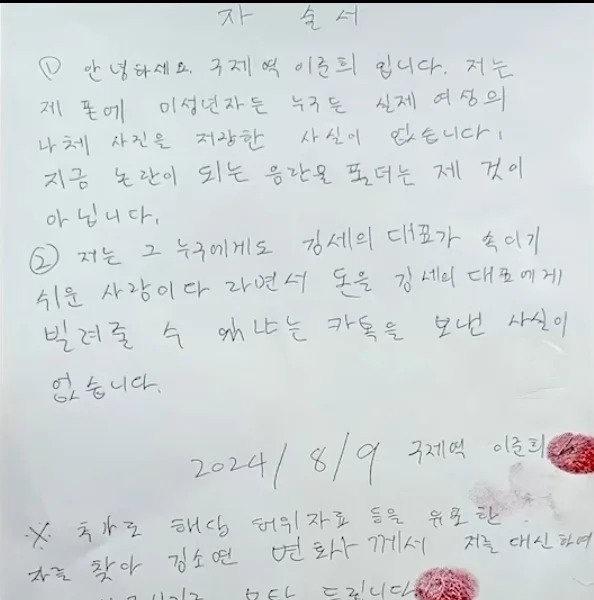 자 술서
① 안녕하세요. 구제역 이준희 입니다. 저는
제 폰에 미성년자든 누구든 실제 여성의
나체 사진을 저장한 사실이 없습니다.
지금 논란이 되는 음란물 폴더는 제 것이
아닙니다.
② 저는 그 누구에게도 김세의 대표가 속이기
쉬운 사람이다 라면서 돈을 김세의 대표에게
빌려줄 수 있냐는 카톡을 보낸 사실이
없습니다.
2024/8/9 구제역 이준희
※ 추가로 해당 허위자료 등을 유포한
자를 찾아 김소연 변호사께서 저를 대신하여
부탁 드립니다